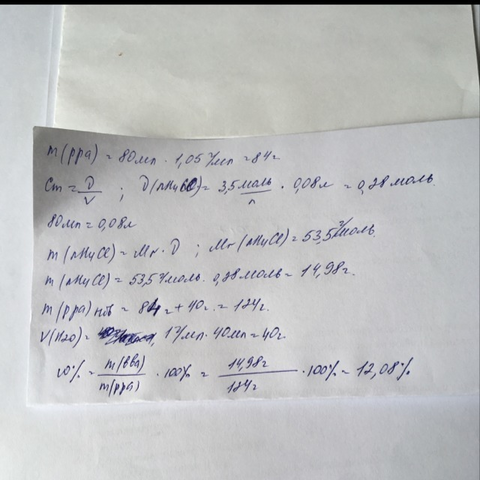 m(рра) = 80мл · 1,05г/мл = 84г
Cm = ν/V ; ν(NH4Cl) = 3,5 моль/л · 0,08л = 0,28 моль.
80мл = 0,08л
m(NH4Cl) = Mr · ν ; Mr(NH4Cl) = 53,5г/моль.
m(NH4Cl) = 53,5г/моль · 0,28моль = 14,98г.
m(рра) нов = 84г + 40г. = 124г.
V(H2O) = 1г/мл · 40мл = 40г.
ω% = m(вва)/m(рра) · 100% = 14,98г/124г · 100% = 12,08%